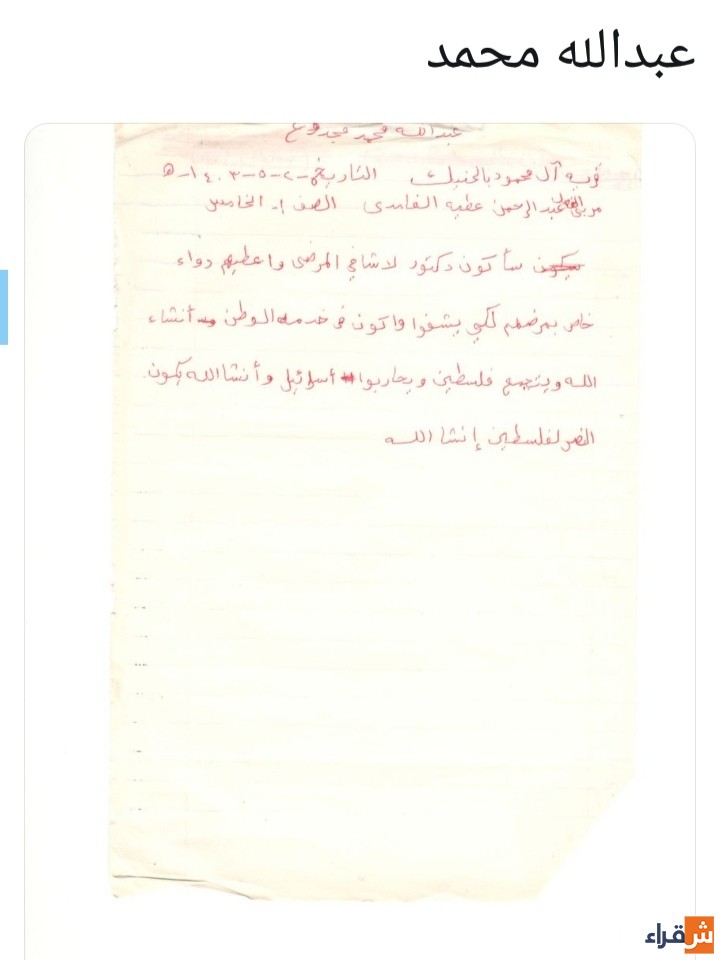 عبدالله محمد
عبدالله محمد مجدوع
قرية آل محمود بالخبيت التاريخ ٢-٥-١٤٠٣-هـ
مربي الفصل عبد الرحمن عطيه الغامدي الصف ١- الخامس
سأكون دكتور لاشافي المرضى واعطيهم دواء
خاص بمرضهم لكي يشفوا واكون في خدمه الوطن أنشاء
الله ويتجمع فلسطين ويحاربوا أسرائيل وأنشاالله يكون
النصر لفلسطين إنشا الله
شقراء